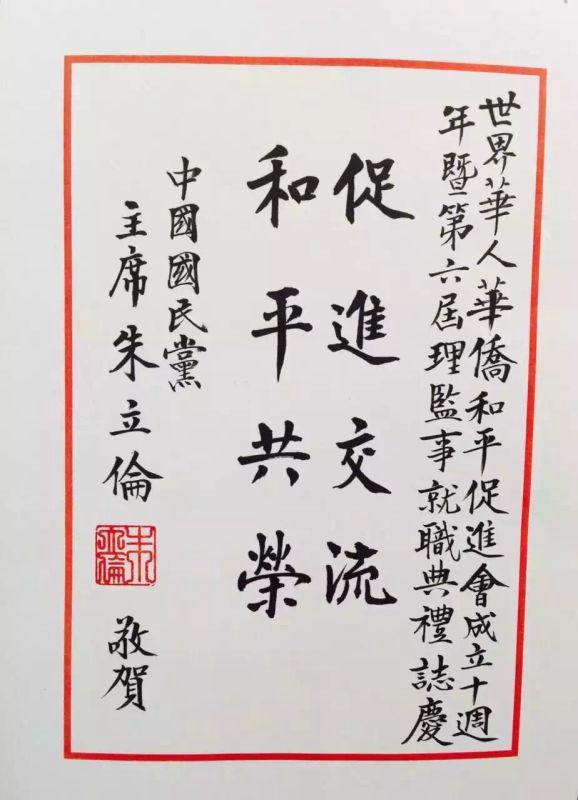 世界華人華僑和平促進會成立十週
年暨第六屆理監事就職典禮誌慶
促進交流
和平共榮
中國國民黨
主席朱立倫
朱立倫
敬賀